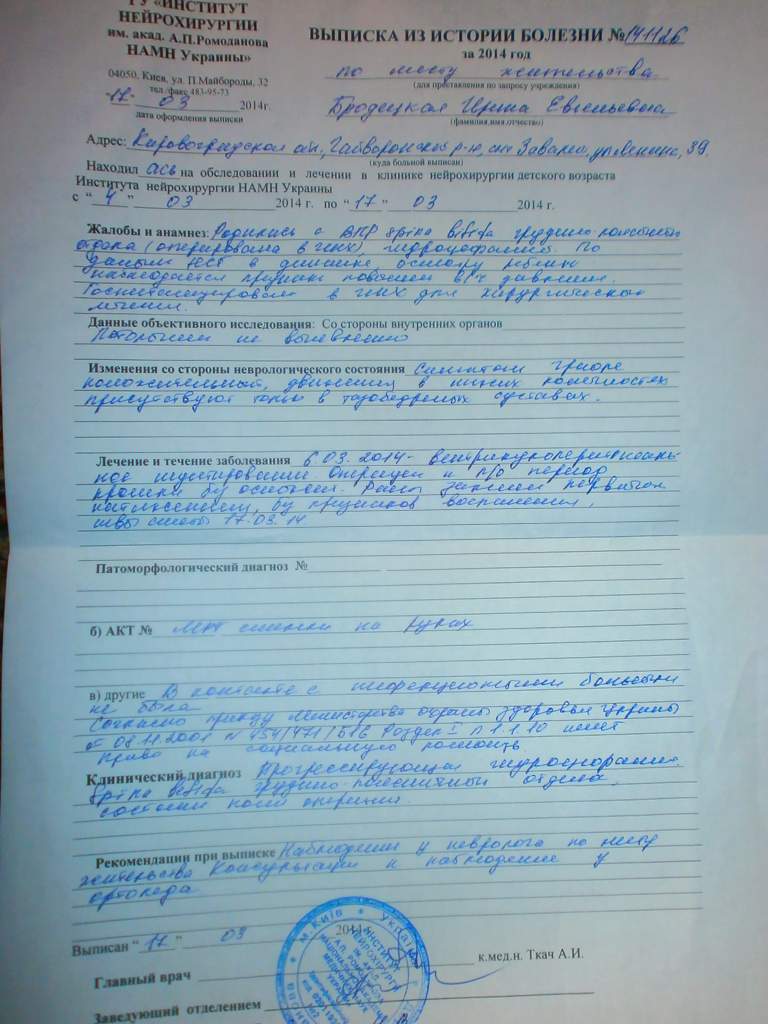 ГУ «ИНСТИТУТ
НЕЙРОХИРУРГИИ
им. акад. А.П.Ромоданова
НАМН Украины»
04050, Киев, ул. П.Майбороды, 32
тел./факс 483-95-73
17 03 2014г.
дата оформления выписки
ВЫПИСКА ИЗ ИСТОРИИ БОЛЕЗНИ № 141126
за 2014 год
по месту жительства
(для преставления по запросу учреждения)
Бродецкая Ирина Евгеньевна
(фамилия,имя,отчество)
Адрес: Кировоградская обл, Гайворонский р-н, смт Завалля, ул Ленина, 39.
(куда больной выписан)
Находил ась на обследовании и лечении в клинике нейрохирургии детского возраста
Института нейрохирургии НАМН Украины
с “ 4 ” 03 2014 г. по “ 17 ” 03 2014 г.
Жалобы и анамнез: Родилась с ВПР spina bifida грудино-поясничного
отдела (оперирована в ) гидроцефалией. По
данным в динамике, осмотру
наблюдается признаки повышен ВЧ давления.
Госпитализирована в для хирургического
лечения.
Данные объективного исследования: Со стороны внутренних органов
Патологии не выявлено
Изменения со стороны неврологического состояния Симптом Грефе
положительный, движения в нижних конечностях
присутствуют только в тазобедренных суставах.
Лечение и течение заболевания 6 03. 2014 - вентрикулоперитонеаль-
ное шунтирование Операция и п/о период
прошли б/у осложнен. Раны зажили первичном
натяжением, б/у признаков воспаления,
швы сняты 17.03.14
Патоморфологический диагноз №
б) АКТ № МРТ снимки на руках
в) другие В контакте с инфекционными больными
не была
Согласно приказу Министерства охраны здоровья Украины
от 08.11.2001 N 454/471/516 Раздел I п 1.1.10 имеет
право на социальную помощь
Клинический диагноз Прогрессирующая гидроцефалия.
Spina bifida грудино-поясничный отдела,
состояни после операции.
Рекомендации при выписке Наблюдении у невролога по месту
жительства Консультации и наблюдение у
ортопеда
Выписан “ 17 ” 03 2014 г.
Главный врач к.мед.н. Ткач А.И.
Заведующий отделением